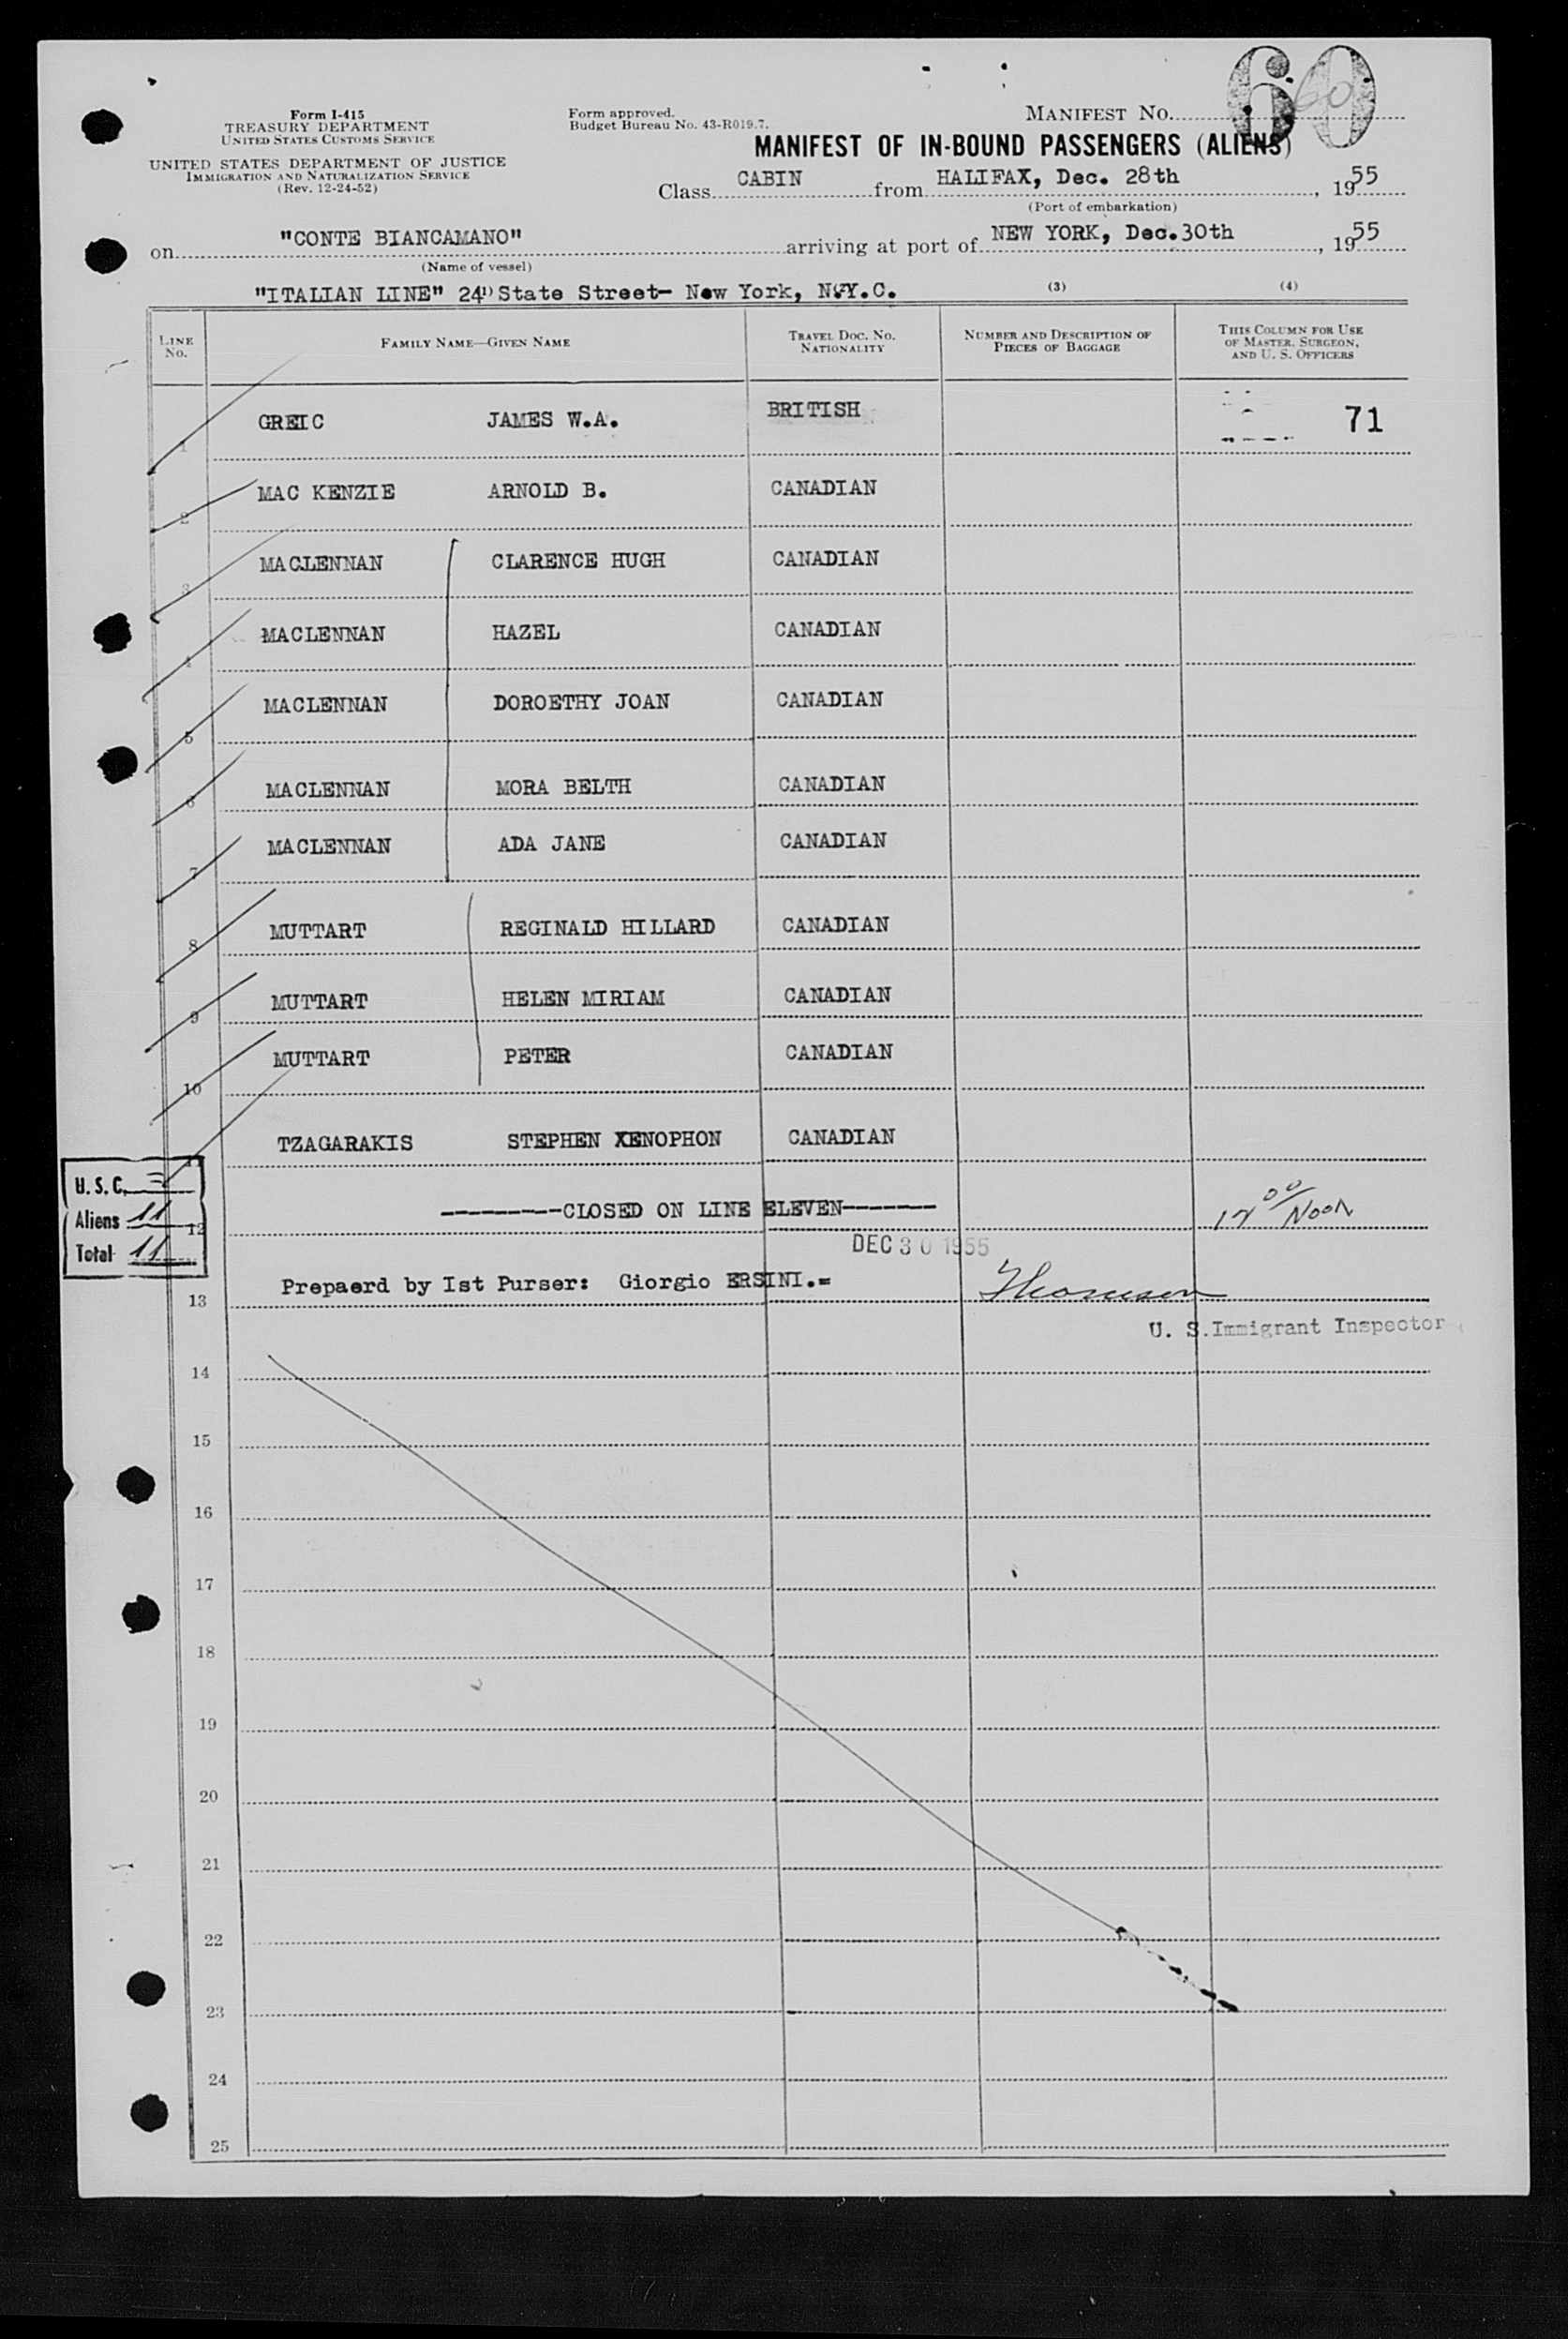 Form I-415
TREASURY DEPARTMENT
UNITED STATES CUSTOMS SERVICE
UNITED STATES DEPARTMENT OF JUSTICE
IMMIGRATION AND NATURALIZATION SERVICE
(Rev. 12-24-52)
Form approved.
Budget Bureau No. 43-R019.7.
MANIFEST NO. 60
60
MANIFEST OF IN-BOUND PASSENGERS (ALIENS)
Class CABIN from HALIFAX, Dec. 28th, 1955
(Port of embarkation)
on "CONTE BIANCAMANO" arriving at port of NEW YORK, Dec.30th, 1955
(Name of vessel)
"ITALIAN LINE" 24 State Street- New York, N.Y.C. (3) (4)
LINE NO. FAMILY NAME—GIVEN NAME TRAVEL DOC. NO. NATIONALITY NUMBER AND DESCRIPTION OF PIECES OF BAGGAGE THIS COLUMN FOR USE OF MASTER, SURGEON, AND U. S. OFFICERS
1 GREIC JAMES W.A. BRITISH 71
2 MAC KENZIE ARNOLD B. CANADIAN
3 MACLENNAN CLARENCE HUGH CANADIAN
4 MACLENNAN HAZEL CANADIAN
5 MACLENNAN DOROETHY JOAN CANADIAN
6 MACLENNAN MORA BELTH CANADIAN
7 MACLENNAN ADA JANE CANADIAN
8 MUTTART REGINALD HILLARD CANADIAN
9 MUTTART HELEN MIRIAM CANADIAN
10 MUTTART PETER CANADIAN
11 TZAGARAKIS STEPHEN XENOPHON CANADIAN
U. S. C.
Aliens 11
Total 11
12 ---------CLOSED ON LINE ELEVEN------- 12 00/Noon
DEC 30 1955
13 Prepaerd by Ist Purser: Giorgio ERSINI.=
U. S. Immigrant Inspector
14
15
16
17
18
19
20
21
22
23
24
25